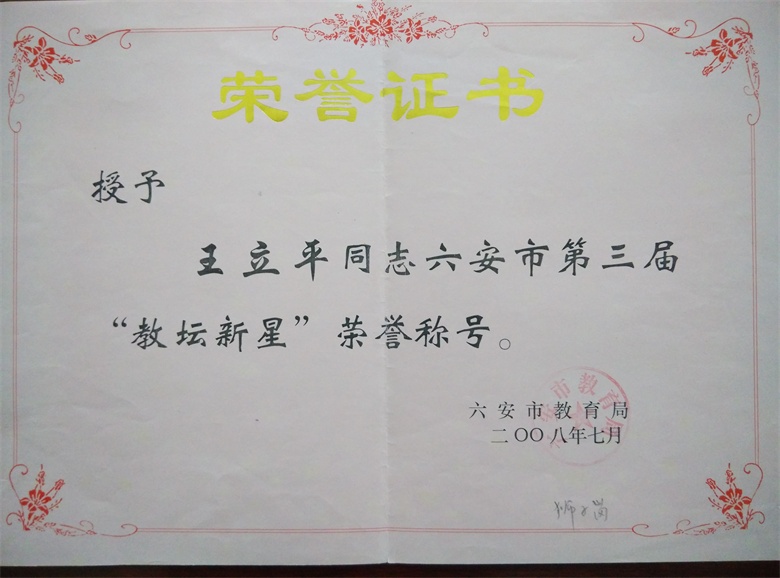 荣誉证书
授予
王立平同志六安市第三届
“教坛新星”荣誉称号。
六安市教育局
二〇〇八年七月
狮子岗